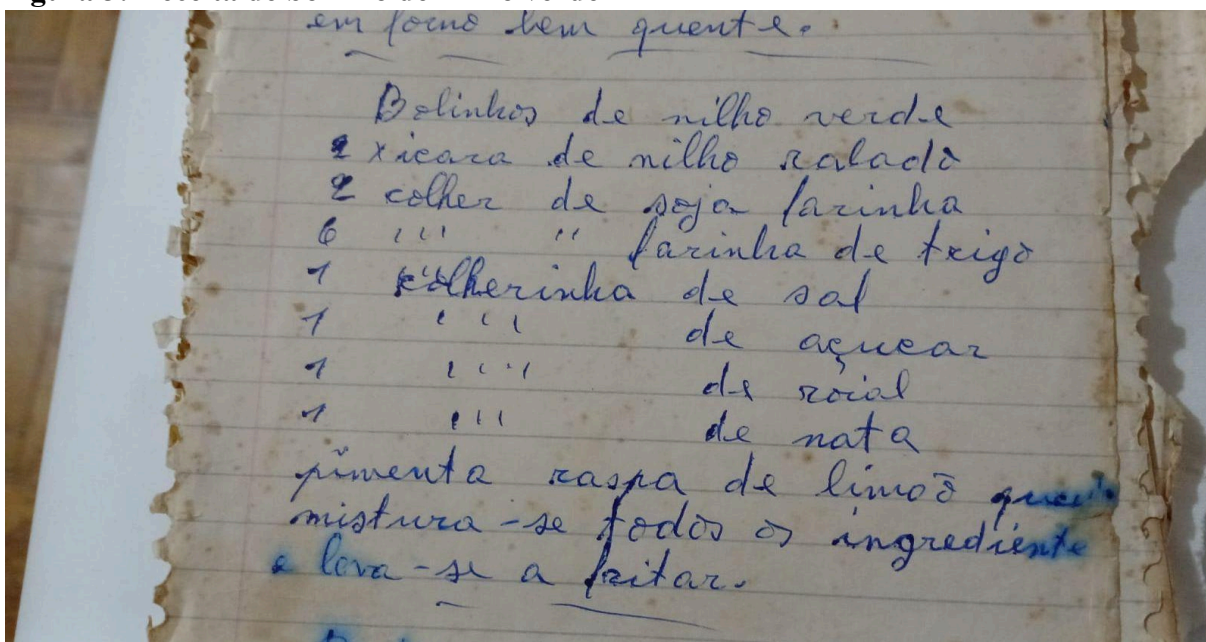 em forno bem quente.
Bolinhos de milho verde
2 xicara de milho ralado
2 colher de soja farinha
6 ''' '' farinha de trigo
1 colherinha de sal
1 ''' de açucar
1 ''' de roial
1 ''' de nata
pimenta raspa de limoõ
mistura-se todos os ingrediente
e leva-se a fritar.